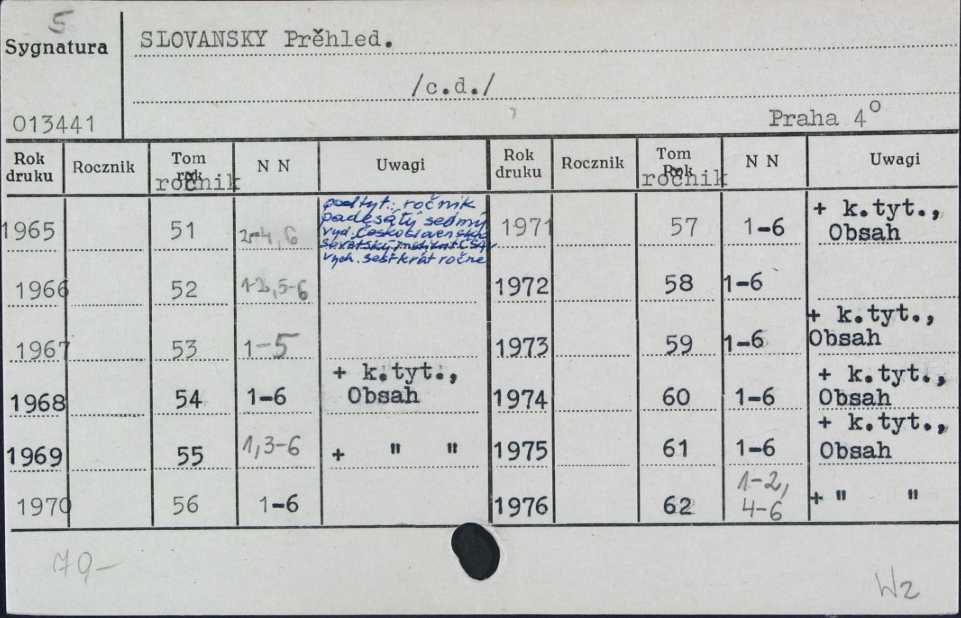 5
Sygnatura
SLOVANSKY Prěhled.
/c.d./
013441
Praha 4°
Rok druku Rocznik Tom rok ročnik N N Uwagi Rok druku Rocznik Tom Rok ročnik N N Uwagi
1965 51 4, 6
podtyt.: ročnik
padesátý sedmý
vyd. Československo
Sovětský institut ČSAV
vych. šestkrát ročně
1971 57 1-6 + k.tyt.,
Obsah
1966 52 1-3, 5-6 1972 58 1-6
1967 53 1-5 1973 59 1-6 + k.tyt.,
Obsah
1968 54 1-6 + k.tyt.,
Obsah
1974 60 1-6 + k.tyt.,
Obsah
1969 55 1, 3-6 + " " 1975 61 1-6 + k.tyt.,
Obsah
1970 56 1-6 1976 62 1-2,
4-6 + " "
79-
Wz